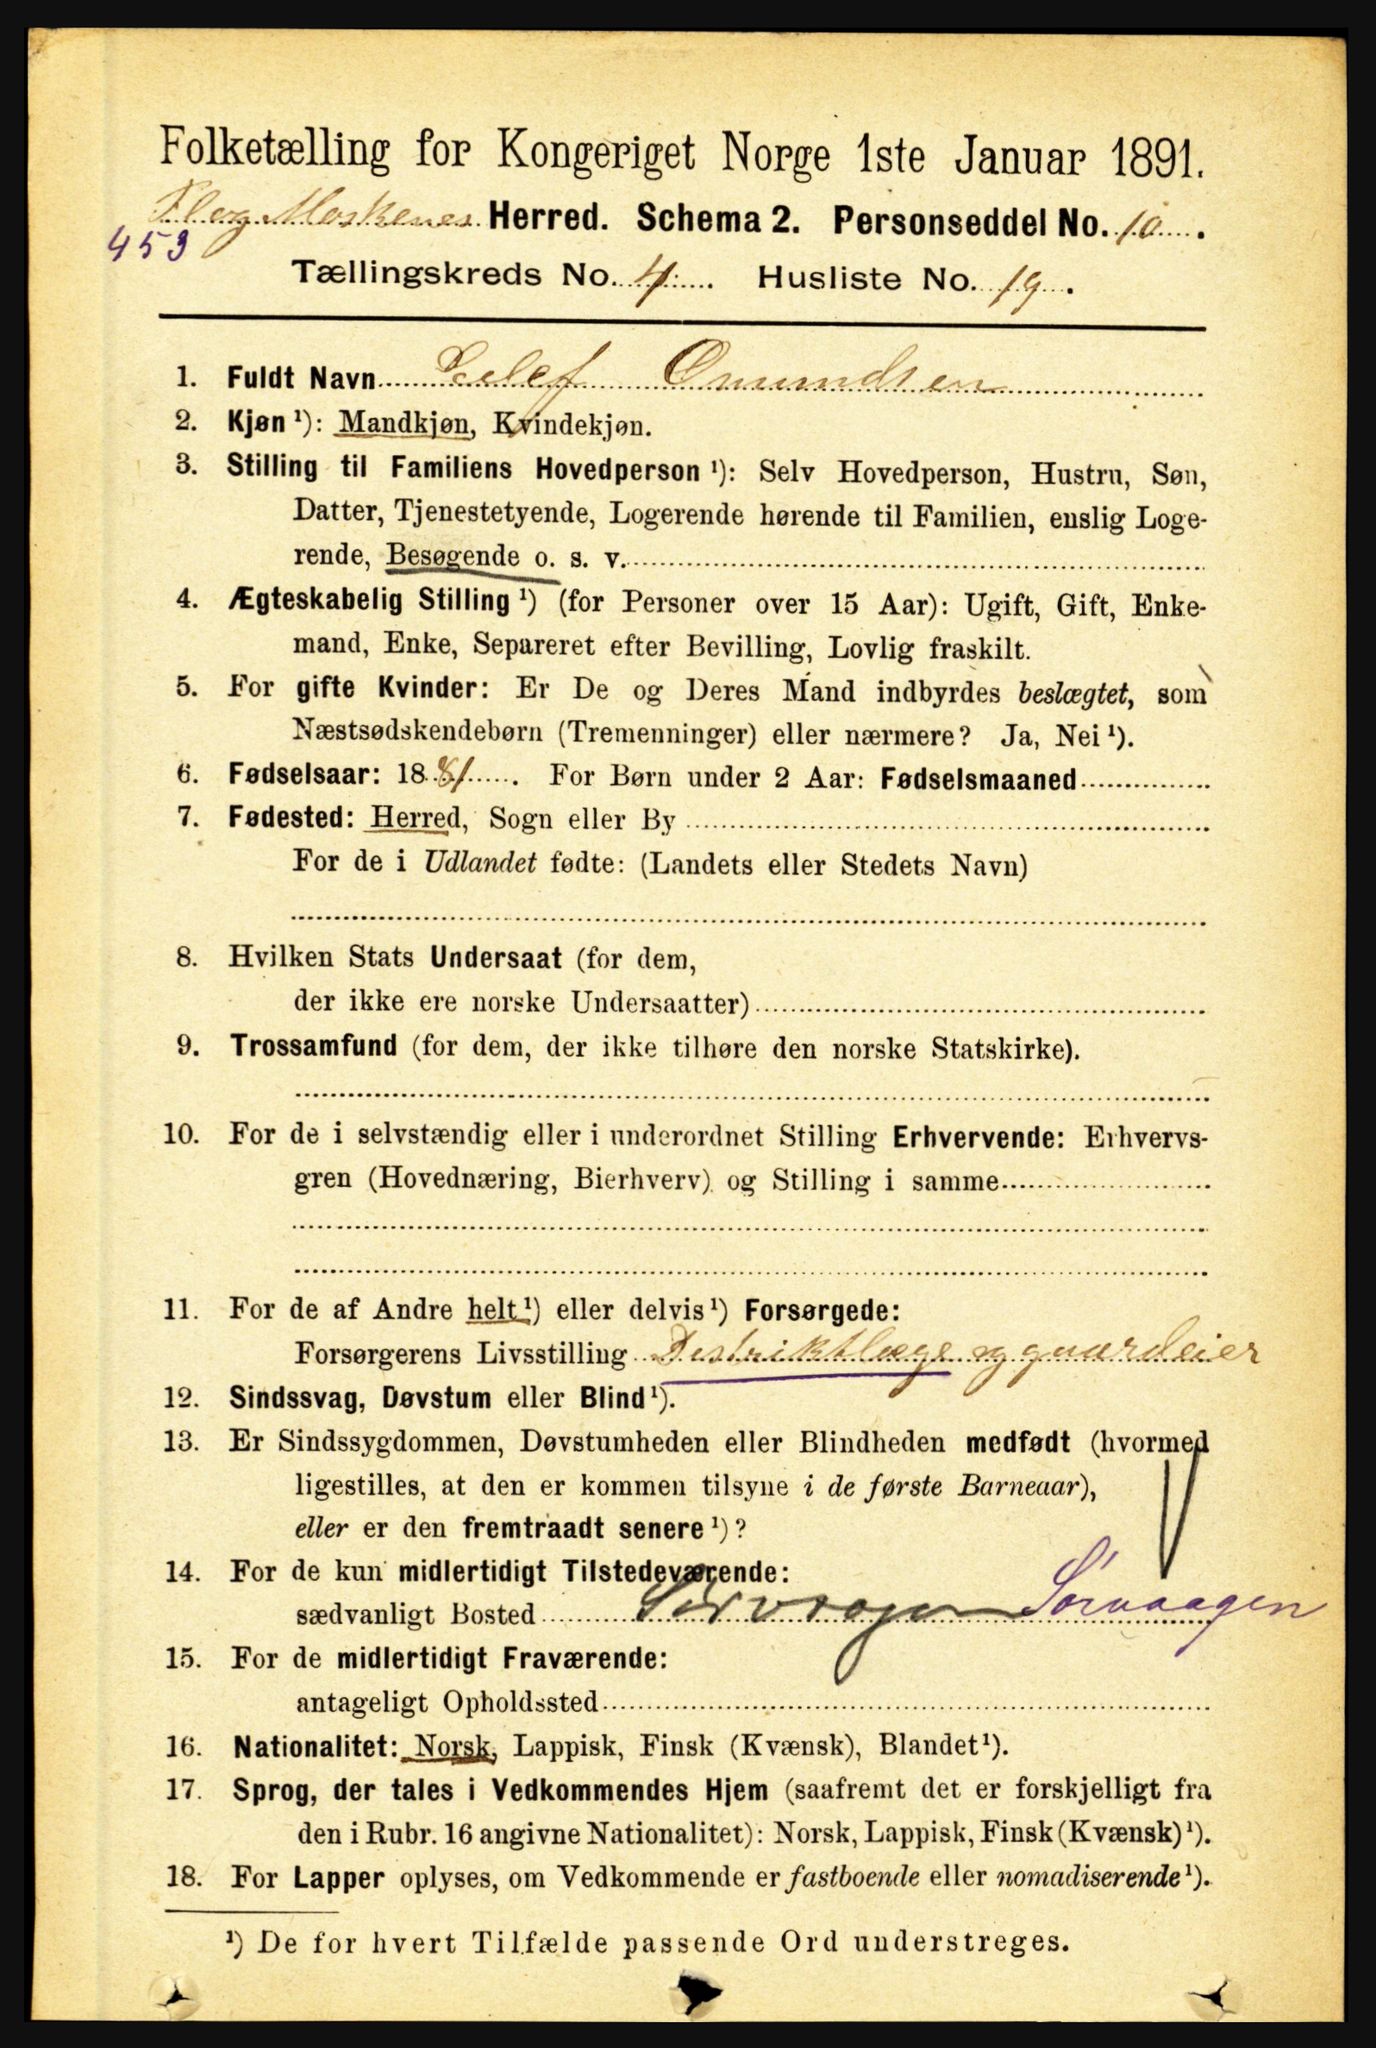 Folketælling for Kongeriget Norge 1ste Januar 1891.
Fl og Moskenes Herred. Schema 2. Personseddel No. 10.
453
Tællingskreds No. 4. Husliste No. 19.
1. Fuldt Navn Eilef Omundsen
2. Kjøn ¹): Mandkjøn, Kvindekjøn.
3. Stilling til Familiens Hovedperson ¹): Selv Hovedperson, Hustru, Søn,
Datter, Tjenestetyende, Logerende hørende til Familien, enslig Loge-
rende, Besøgende o. s. v.
4. Ægteskabelig Stilling ¹) (for Personer over 15 Aar): Ugift, Gift, Enke-
mand, Enke, Separeret efter Bevilling, Lovlig fraskilt.
5. For gifte Kvinder: Er De og Deres Mand indbyrdes beslægtet, som
Næstsødskendebørn (Tremenninger) eller nærmere? Ja, Nei ¹).
6. Fødselsaar: 1881. For Børn under 2 Aar: Fødselsmaaned
7. Fødested: Herred, Sogn eller By
For de i Udlandet fødte: (Landets eller Stedets Navn)
8. Hvilken Stats Undersaat (for dem,
der ikke ere norske Undersaatter)
9. Trossamfund (for dem, der ikke tilhøre den norske Statskirke).
10. For de i selvstændig eller i underordnet Stilling Erhvervende: Erhvervs-
gren (Hovednæring, Bierhverv) og Stilling i samme
11. For de af Andre helt ¹) eller delvis ¹) Forsørgede:
Forsørgerens Livsstilling Distriktlæge og gaardeier
12. Sindssvag, Døvstum eller Blind ¹).
13. Er Sindssygdommen, Døvstumheden eller Blindheden medfødt (hvormed
ligestilles, at den er kommen tilsyne i de første Barneaar),
eller er den fremtraadt senere ¹)?
14. For de kun midlertidigt Tilstedeværende:
sædvanligt Bosted Sørvaagen Sørvaagen
15. For de midlertidigt Fraværende:
antageligt Opholdssted
16. Nationalitet: Norsk, Lappisk, Finsk (Kvænsk), Blandet ¹).
17. Sprog, der tales i Vedkommendes Hjem (saafremt det er forskjelligt fra
den i Rubr. 16 angivne Nationalitet): Norsk, Lappisk, Finsk (Kvænsk) ¹).
18. For Lapper oplyses, om Vedkommende er fastboende eller nomadiserende ¹).
¹) De for hvert Tilfælde passende Ord understreges.